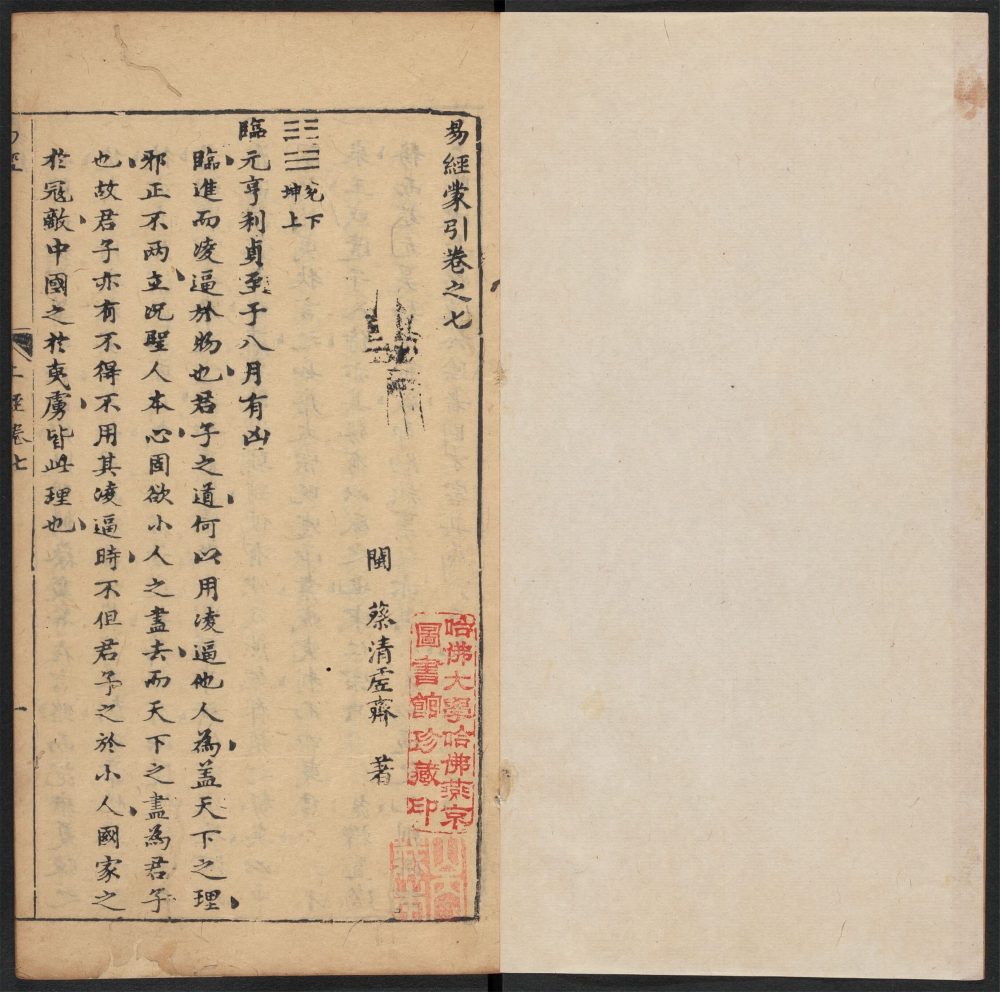 易經蒙引卷之七
閩 蔡清虛齋 著
哈佛大學哈佛燕京
圖書館珍藏印
兌下
坤上
臨元亨利貞至于八月有凶
臨進而凌逼於物也君子之道何以用凌逼他人為盖天下之理
邪正不两立况聖人本心固欲小人之盡去而天下之盡為君子
也故君子亦有不得不用其凌逼時不但君子之於小人國家之
於冦敵中國之於夷虜皆此理也
上經卷七
一